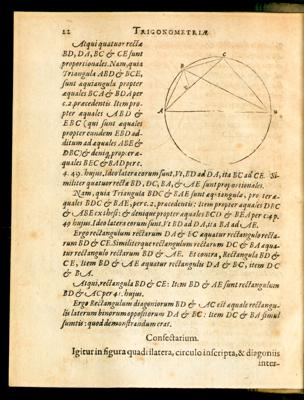 22 TRIGONOMETRIÆ
At qui quatuor rectæ
BD, DA, BC & CE sunt
proportionales. Nam, quia
Triangula ABD & BCE,
sunt æquiangula propter
æquales BCA & BDA per
c. 2. præcedentis Item pro-
pter æquales ABD &
EBC (qui sunt æquales
propter eundem EBD ad-
ditum ad æquales ABE &
DBC) & deniq, propter æ-
quales BEC & BAD per c.
4. 49. hujus. Ideo latera eorum sunt, Vt, BD ad DA, ita BC ad CE. Si-
militer quatuor rectæ BD, DC, BA, & AE sunt proportionales.
Nam, quia Triangula BDC & BAE sunt æquiangula, propter æ-
quales BDC & BAE, per c. 2. præcedentis: Item propter æquales DBC
& ABE ex thesi: & denique propter æquales BCD & BEA per c. 4 p.
49 hujus. Ideo latera eorum sunt, Vt BD ad DC, ita BA ad AE.
Ergo rectangulum rectarum DA & BC æquatur rectangulo recta-
rum BD & CE. Similiterque rectangulum rectarum DC & BA æqua-
tur rectangulo rectarum BD & AE. Et contra, Rectangula BD &
CE, Item BD & AE æquatur rectangulis DA & BC, item DC
& BA.
Atqui, rectangula BD & CE: Item BD & AE sunt rectangulum
BD & AC per 41. hujus.
Ergo Rectangulum diagoniorum BD & AC est æquale rectangu-
lis laterum binorum oppositorum DA & BC: item DC & BA simul
sumtis: quod demonstrandum erat.
Consectarium.
Igitur in figura quadrilatera, circulo inscripta, & diagoniis
inter-
A B C D E